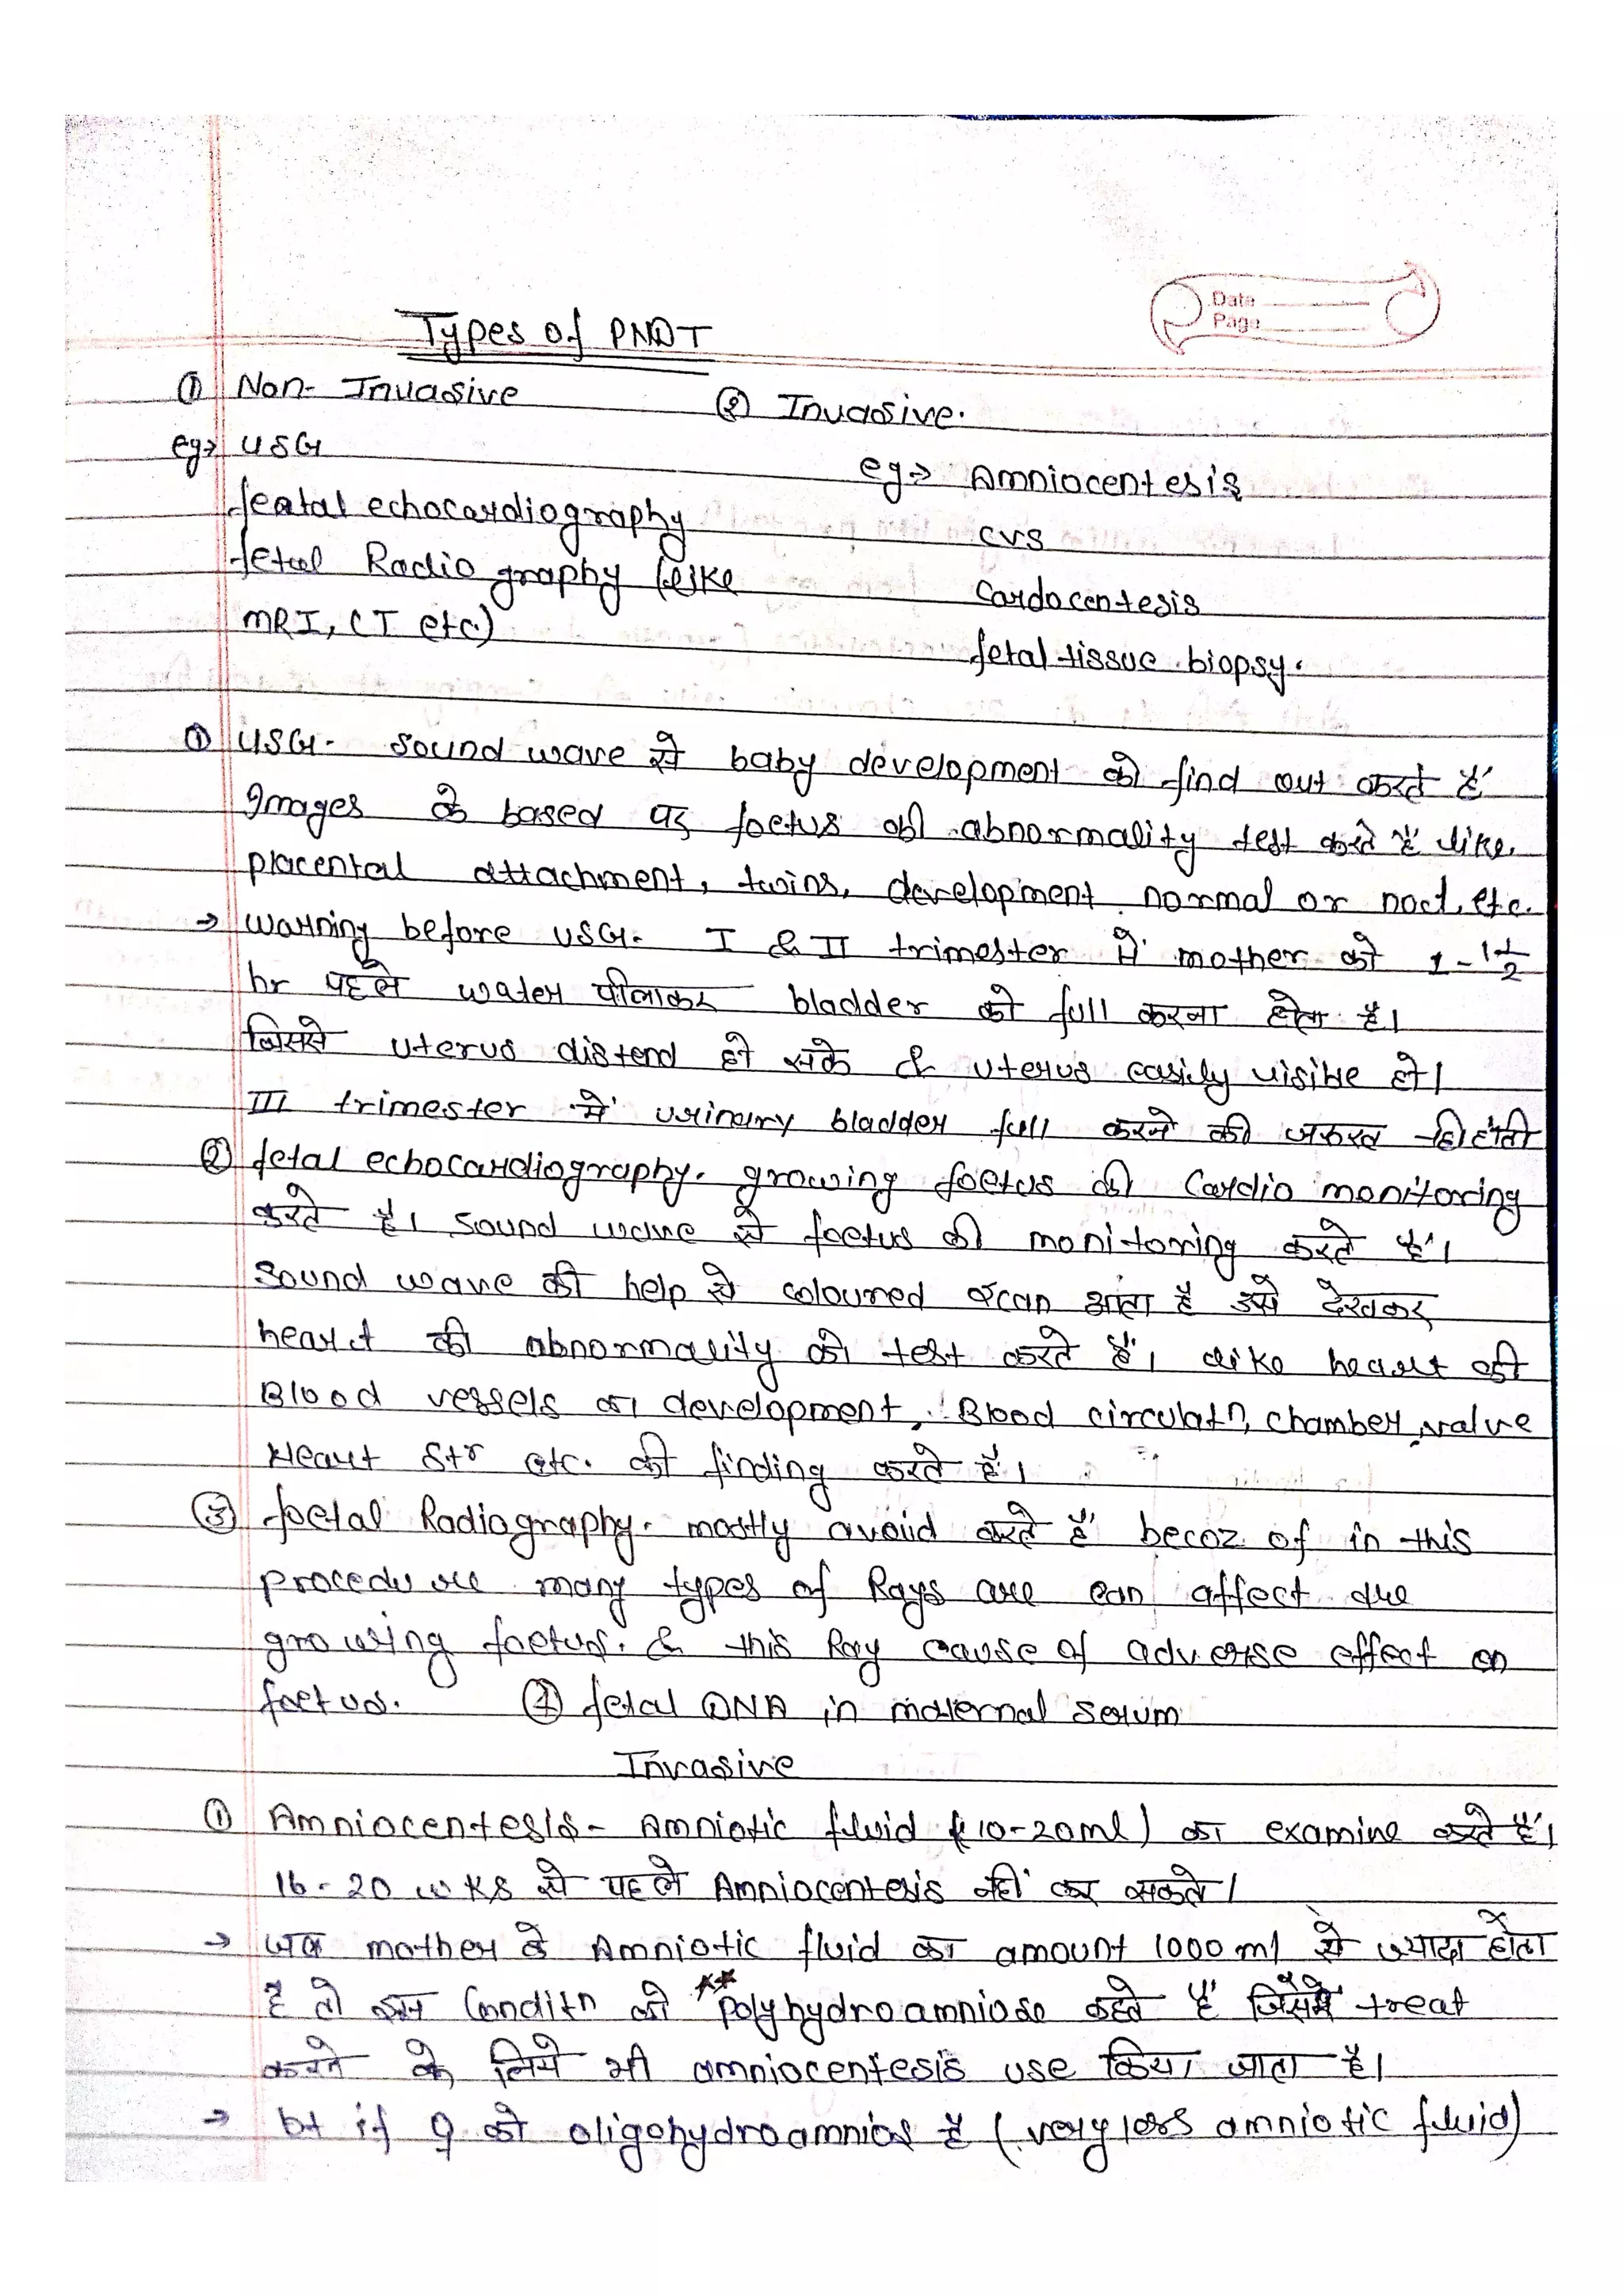 Date
Page
Types of PNDT
① Non-Invasive ② Invasive.
eg→ USG eg→ Amniocentesis
featal echocardiography CVS
fetal Radiography (like Cordocentesis
MRI, CT etc.) fetal tissue biopsy.
① USG- Sound wave से baby development को find out करते हैं
Images के based पर foetus की abnormality test करते हैं like
placental attachment, twins, development normal or noct, etc.
→ Warning before USG- I & II trimester में mother को 1-1 1/2
hr पहले water पीलाकर bladder को full करना होता है।
जिससे uterus distend हो सके & uterus easily visible हो।
III trimester में urinary bladder full करने की जरूरत नही होती
② fetal echocardiography. growing foetus की Cardio monitoring
करते है। sound wave से foetus की monitoring करते हैं।
Sound wave की help से coloured scan आता है उसे देखकर
heart की abnormality को test करते हैं। like heart की
Blood vessels का development, Blood circulatn, chamber, valve
Heart Str etc. की finding करते है।
③ foetal Radiography. mostly avoid करते हैं becoz of in this
procedure many types of Rays are can affect the
growing foetus. & this Ray cause of adverse effect on
foetus. ④ fetal DNA in maternal serum
Invasive
① Amniocentesis- Amniotic fluid (10-20ml) का examine करते हैं।
16-20 wks से पहले Amniocentesis नहीं कर सकते।
→ जब mother के Amniotic fluid का amount 1000 ml से ज्यादा होता
है तो इस Conditn को **polyhydroamniose कहते हैं जिसमें treat
करने के लिये भी amniocentesis use किया जाता है।
→ bt if ♀ को oligohydroamnios है (very less amniotic fluid)